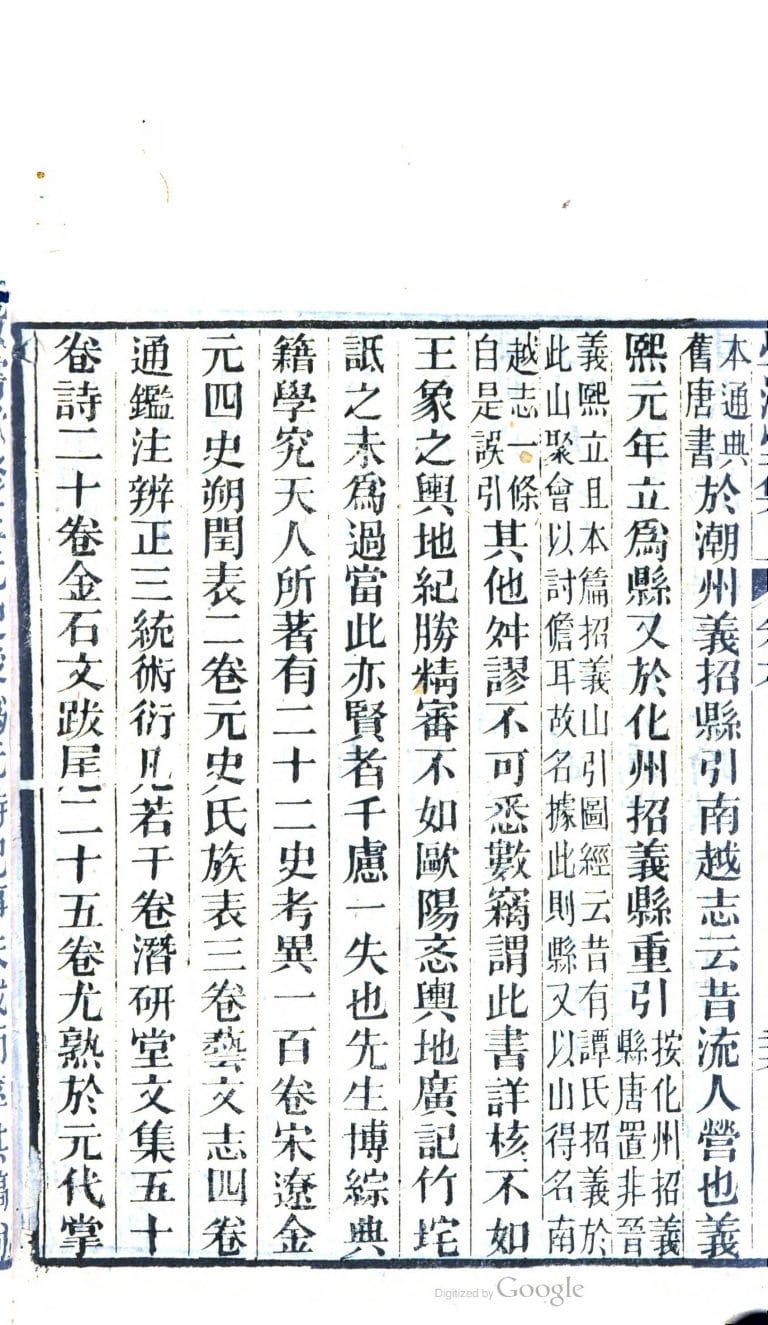 本通典
舊唐書於潮州義招縣引南越志云昔流人營也義
熙元年立爲縣又於化州招義縣重引按化州招義
縣唐置非晉
義熙立且本篇招義山引圖經云昔有譚氏招義於
此山聚會以討儋耳故名據此則縣又以山得名南
越志一條
自是誤引其他舛謬不可悉數竊謂此書詳核不如
王象之輿地紀勝精審不如歐陽忞輿地廣記竹垞
詆之未爲過當此亦賢者千慮一失也先生博綜典
籍學究天人所著有二十二史考異一百卷宋遼金
元四史朔閏表二卷元史氏族表三卷藝文志四卷
通鑑注辨正三統術衍凡若干卷潛研堂文集五十
卷詩二十卷金石文跋尾二十五卷尤熟於元代掌
Digitized by Google